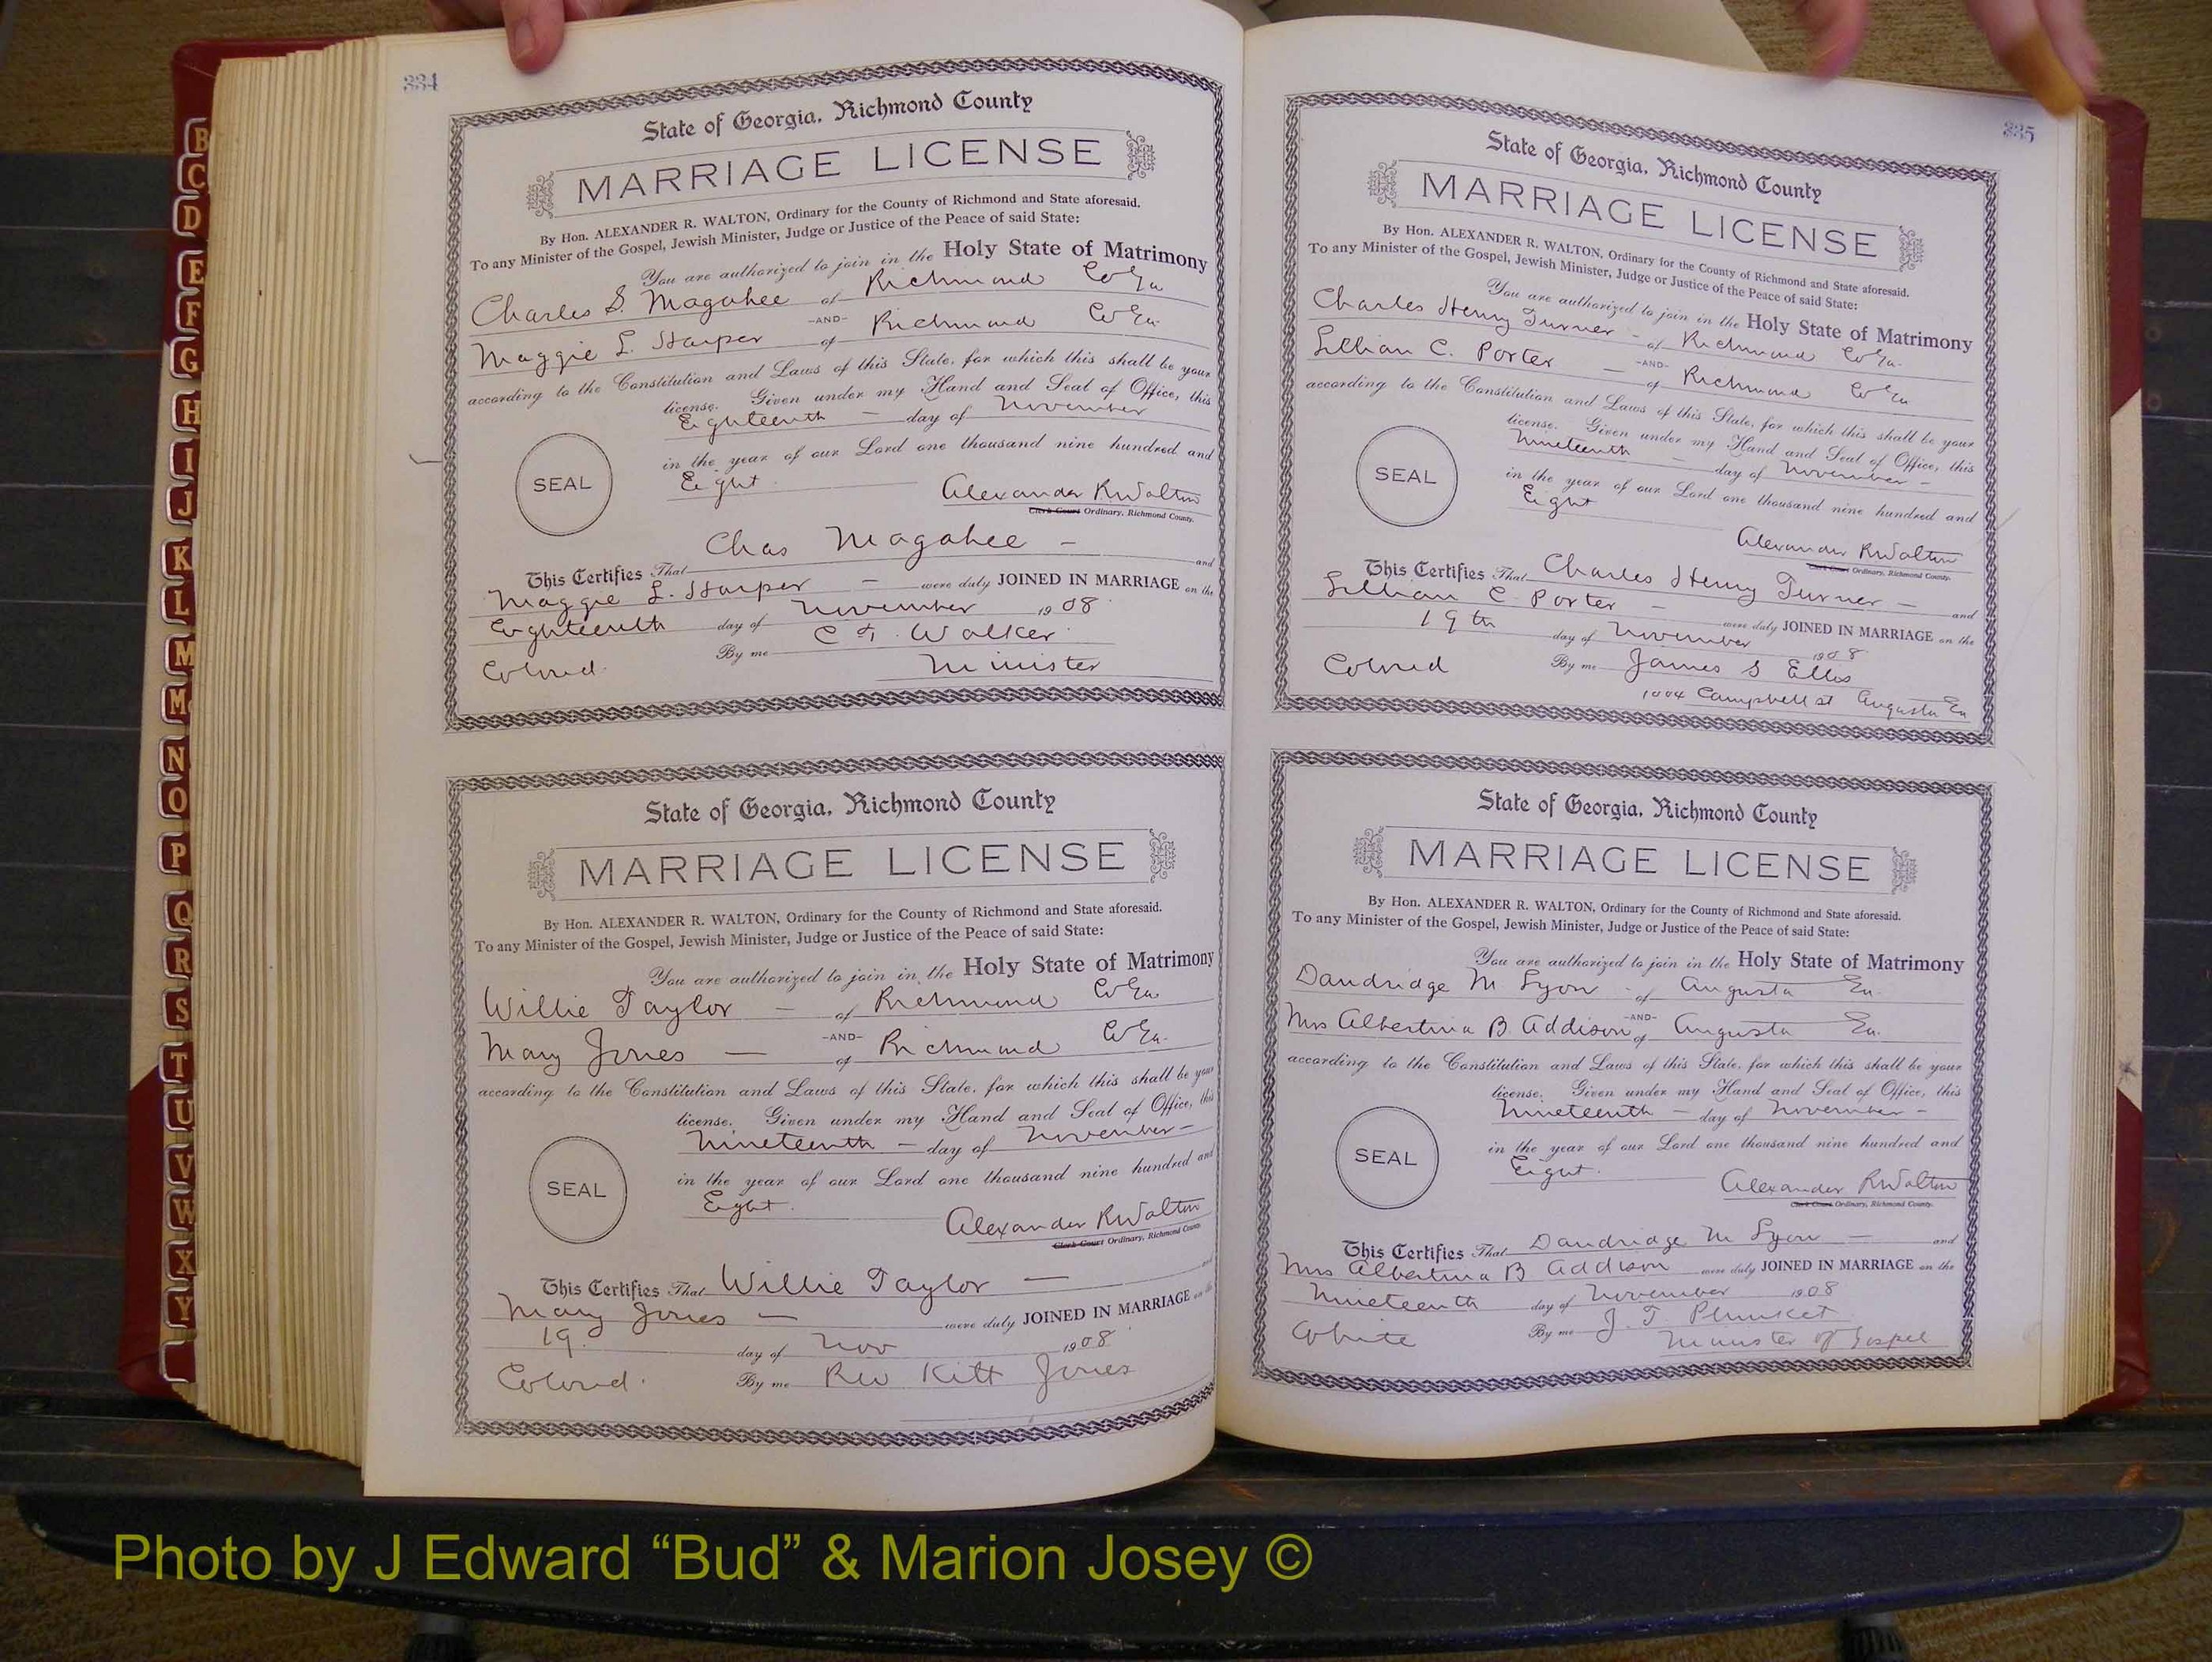 B
C
D
E
F
G
H
I
J
K
L
M
Mc
N
O
P
Q
R
S
T
U
V
W
X
Y
334
State of Georgia, Richmond County
MARRIAGE LICENSE
By Hon. ALEXANDER R. WALTON, Ordinary for the County of Richmond and State aforesaid.
To any Minister of the Gospel, Jewish Minister, Judge or Justice of the Peace of said State:
You are authorized to join in the Holy State of Matrimony
Charles S. Magahee of Richmond Co Ga
-AND-
Maggie L. Harper of Richmond Co Ga
according to the Constitution and Laws of this State, for which this shall be your
license. Given under my Hand and Seal of Office, this
Eighteenth - day of November
in the year of our Lord one thousand nine hundred and
SEAL
Eight.
Alexander R Walton
Clerk Court Ordinary, Richmond County.
This Certifies That Chas Magahee - and
Maggie L. Harper - were duly JOINED IN MARRIAGE on the
Eighteenth day of November 1908
Colored. By me C T. Walker
Minister
State of Georgia, Richmond County
MARRIAGE LICENSE
By Hon. ALEXANDER R. WALTON, Ordinary for the County of Richmond and State aforesaid.
To any Minister of the Gospel, Jewish Minister, Judge or Justice of the Peace of said State:
You are authorized to join in the Holy State of Matrimony
Willie Taylor - of Richmond Co Ga
-AND-
Mary Jones - of Richmond Co Ga.
according to the Constitution and Laws of this State, for which this shall be your
license. Given under my Hand and Seal of Office, this
Nineteenth - day of November -
in the year of our Lord one thousand nine hundred and
SEAL
Eight.
Alexander R Walton
Clerk Court Ordinary, Richmond County
This Certifies That Willie Taylor - and
Mary Jones - were duly JOINED IN MARRIAGE on the
19 day of Nov 1908
Colored. By me Rev Kitt Jones
335
State of Georgia, Richmond County
MARRIAGE LICENSE
By Hon. ALEXANDER R. WALTON, Ordinary for the County of Richmond and State aforesaid.
To any Minister of the Gospel, Jewish Minister, Judge or Justice of the Peace of said State:
You are authorized to join in the Holy State of Matrimony
Charles Henry Turner - of Richmond Co Ga-
-AND-
Lillian C. Porter - of Richmond Co Ga
according to the Constitution and Laws of this State, for which this shall be your
license. Given under my Hand and Seal of Office, this
Nineteenth - day of November -
in the year of our Lord one thousand nine hundred and
SEAL
Eight
Alexander R Walton
Clerk Court Ordinary, Richmond County.
This Certifies That Charles Henry Turner - and
Lillian C. Porter - were duly JOINED IN MARRIAGE on the
19th day of November 1908
Colored By me James S Ellis
1004 Campbell st Augusta Ga
State of Georgia, Richmond County
MARRIAGE LICENSE
By Hon. ALEXANDER R. WALTON, Ordinary for the County of Richmond and State aforesaid.
To any Minister of the Gospel, Jewish Minister, Judge or Justice of the Peace of said State:
You are authorized to join in the Holy State of Matrimony
Dandridge M Lyon - of Augusta Ga-
-AND-
Mrs Albertina B. Addison of Augusta Ga.
according to the Constitution and Laws of this State, for which this shall be your
license. Given under my Hand and Seal of Office, this
Nineteenth - day of November -
in the year of our Lord one thousand nine hundred and
SEAL
Eight.
Alexander R Walton
Clerk Court Ordinary, Richmond County.
This Certifies That Dandridge M Lyon - and
Mrs Albertina B Addison were duly JOINED IN MARRIAGE on the
Nineteenth day of November 1908
White By me J. T. Plunket
Minister of Gospel
Photo by J Edward “Bud” & Marion Josey ©